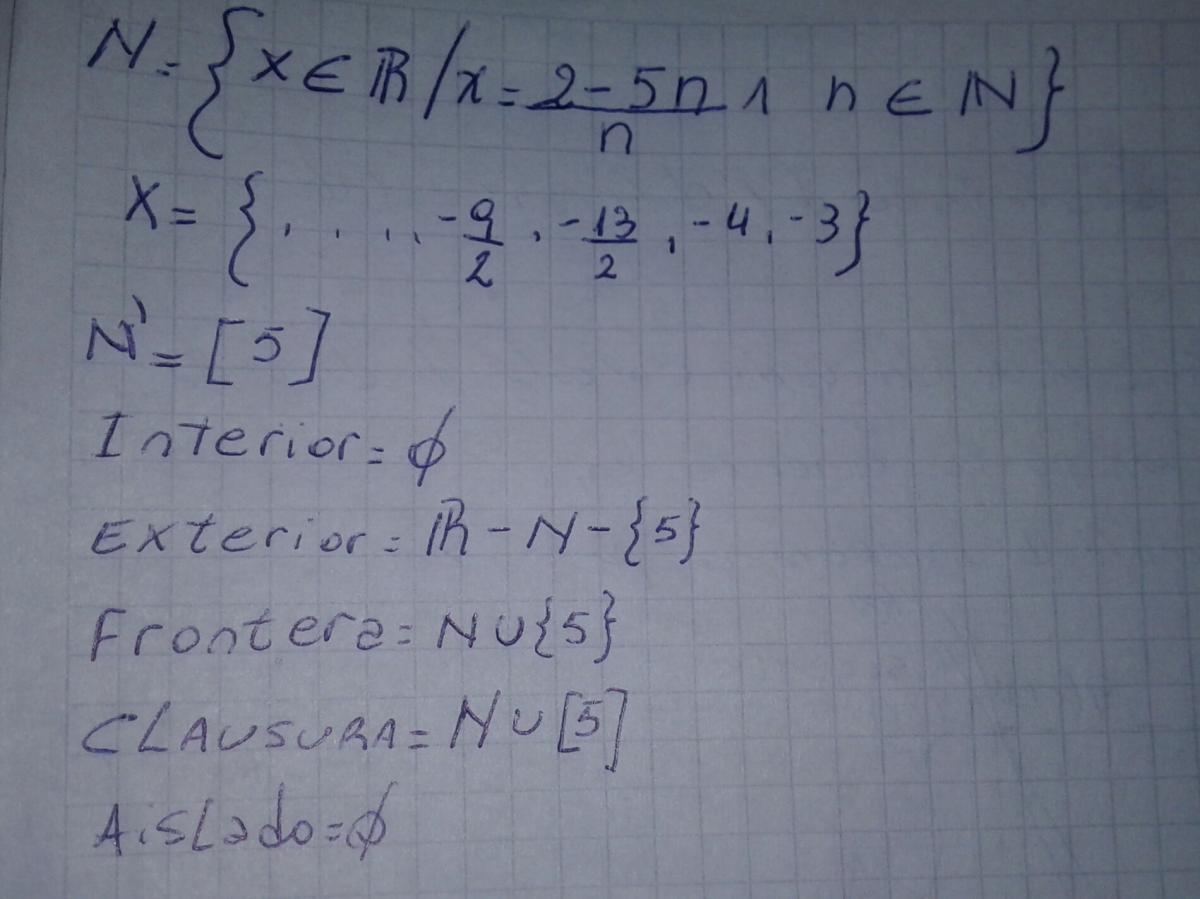 N = {x ∈ ℝ / x = (2 - 5n)/n ∧ n ∈ ℕ}
X = {. . . . . -9/2, -13/2, -4, -3}
N' = [5]
Interior = ∅
Exterior = ℝ - N - {5}
Frontera = N ∪ {5}
CLAUSURA = N ∪ [5]
Aislado = ∅